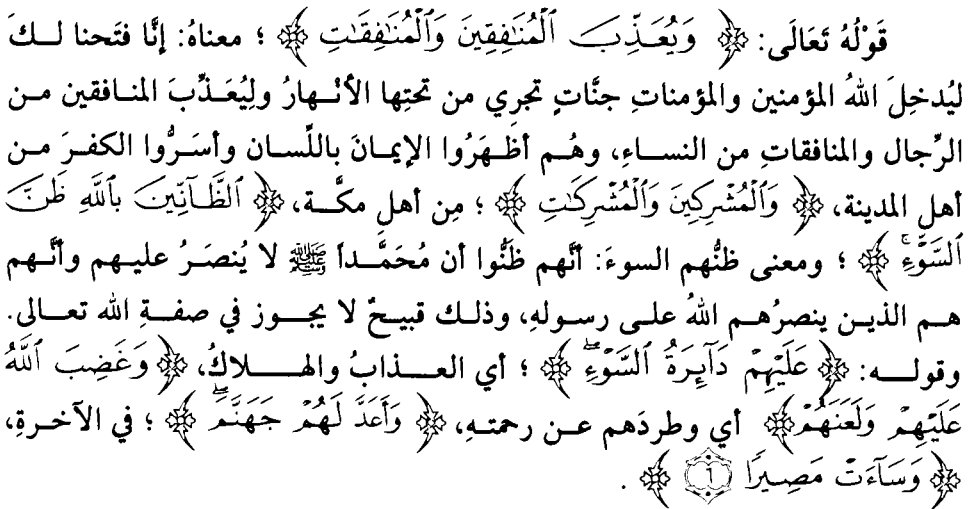 قَوْلُهُ تَعَالَى: ﴿ وَيُعَذِّبَ الْمُنَافِقِينَ وَالْمُنَافِقَاتِ ﴾ ؛ معناهُ: إنَّا فتَحنا لـكَ
ليُدخِلَ اللهُ المؤمنين والمؤمناتِ جنَّاتٍ تجري من تحتِها الأنْـهارُ ولِيُعَـذِّبَ المنـافقين مـن
الرِّجال والمنافقاتِ من النساءِ، وهُـم أظـهَرُوا الإيمـانَ باللِّسـان وأسَـرُّوا الكفـرَ مـن
أهلِ المدينة، ﴿ وَٱلْمُشْرِكِينَ وَٱلْمُشْرِكَٰتِ ﴾ ؛ مِن أهلِ مكَّـة، ﴿ ٱلظَّآنِّينَ بِٱللَّهِ ظَنَّ
ٱلسَّوْءِۚ ﴾ ؛ ومعنى ظنُّهم السوءَ: أنَّهم ظَنُّوا أن مُحَمَّـداً ﷺ لا يُنصَـرُ عليـهم وأنَّـهم
هـم الذيـن ينصرُهـم اللهُ علـى رسـولهِ، وذلـك قبيـحٌ لا يجـوز في صفـةِ الله تعـالى.
وقولـه: ﴿ عَلَيْهِمْ دَآئِرَةُ ٱلسَّوْءِۖ ﴾ ؛ أي العـذابُ والهـلاكُ، ﴿ وَغَضِبَ ٱللَّهُ
عَلَيْهِمْ وَلَعَنَهُمْ ﴾ أي وطردَهم عـن رحمتـهِ، ﴿ وَأَعَدَّ لَهُمْ جَهَنَّمَۖ ﴾ ؛ في الآخـرةِ،
﴿ وَسَآءَتْ مَصِيرًا ٦ ﴾ .